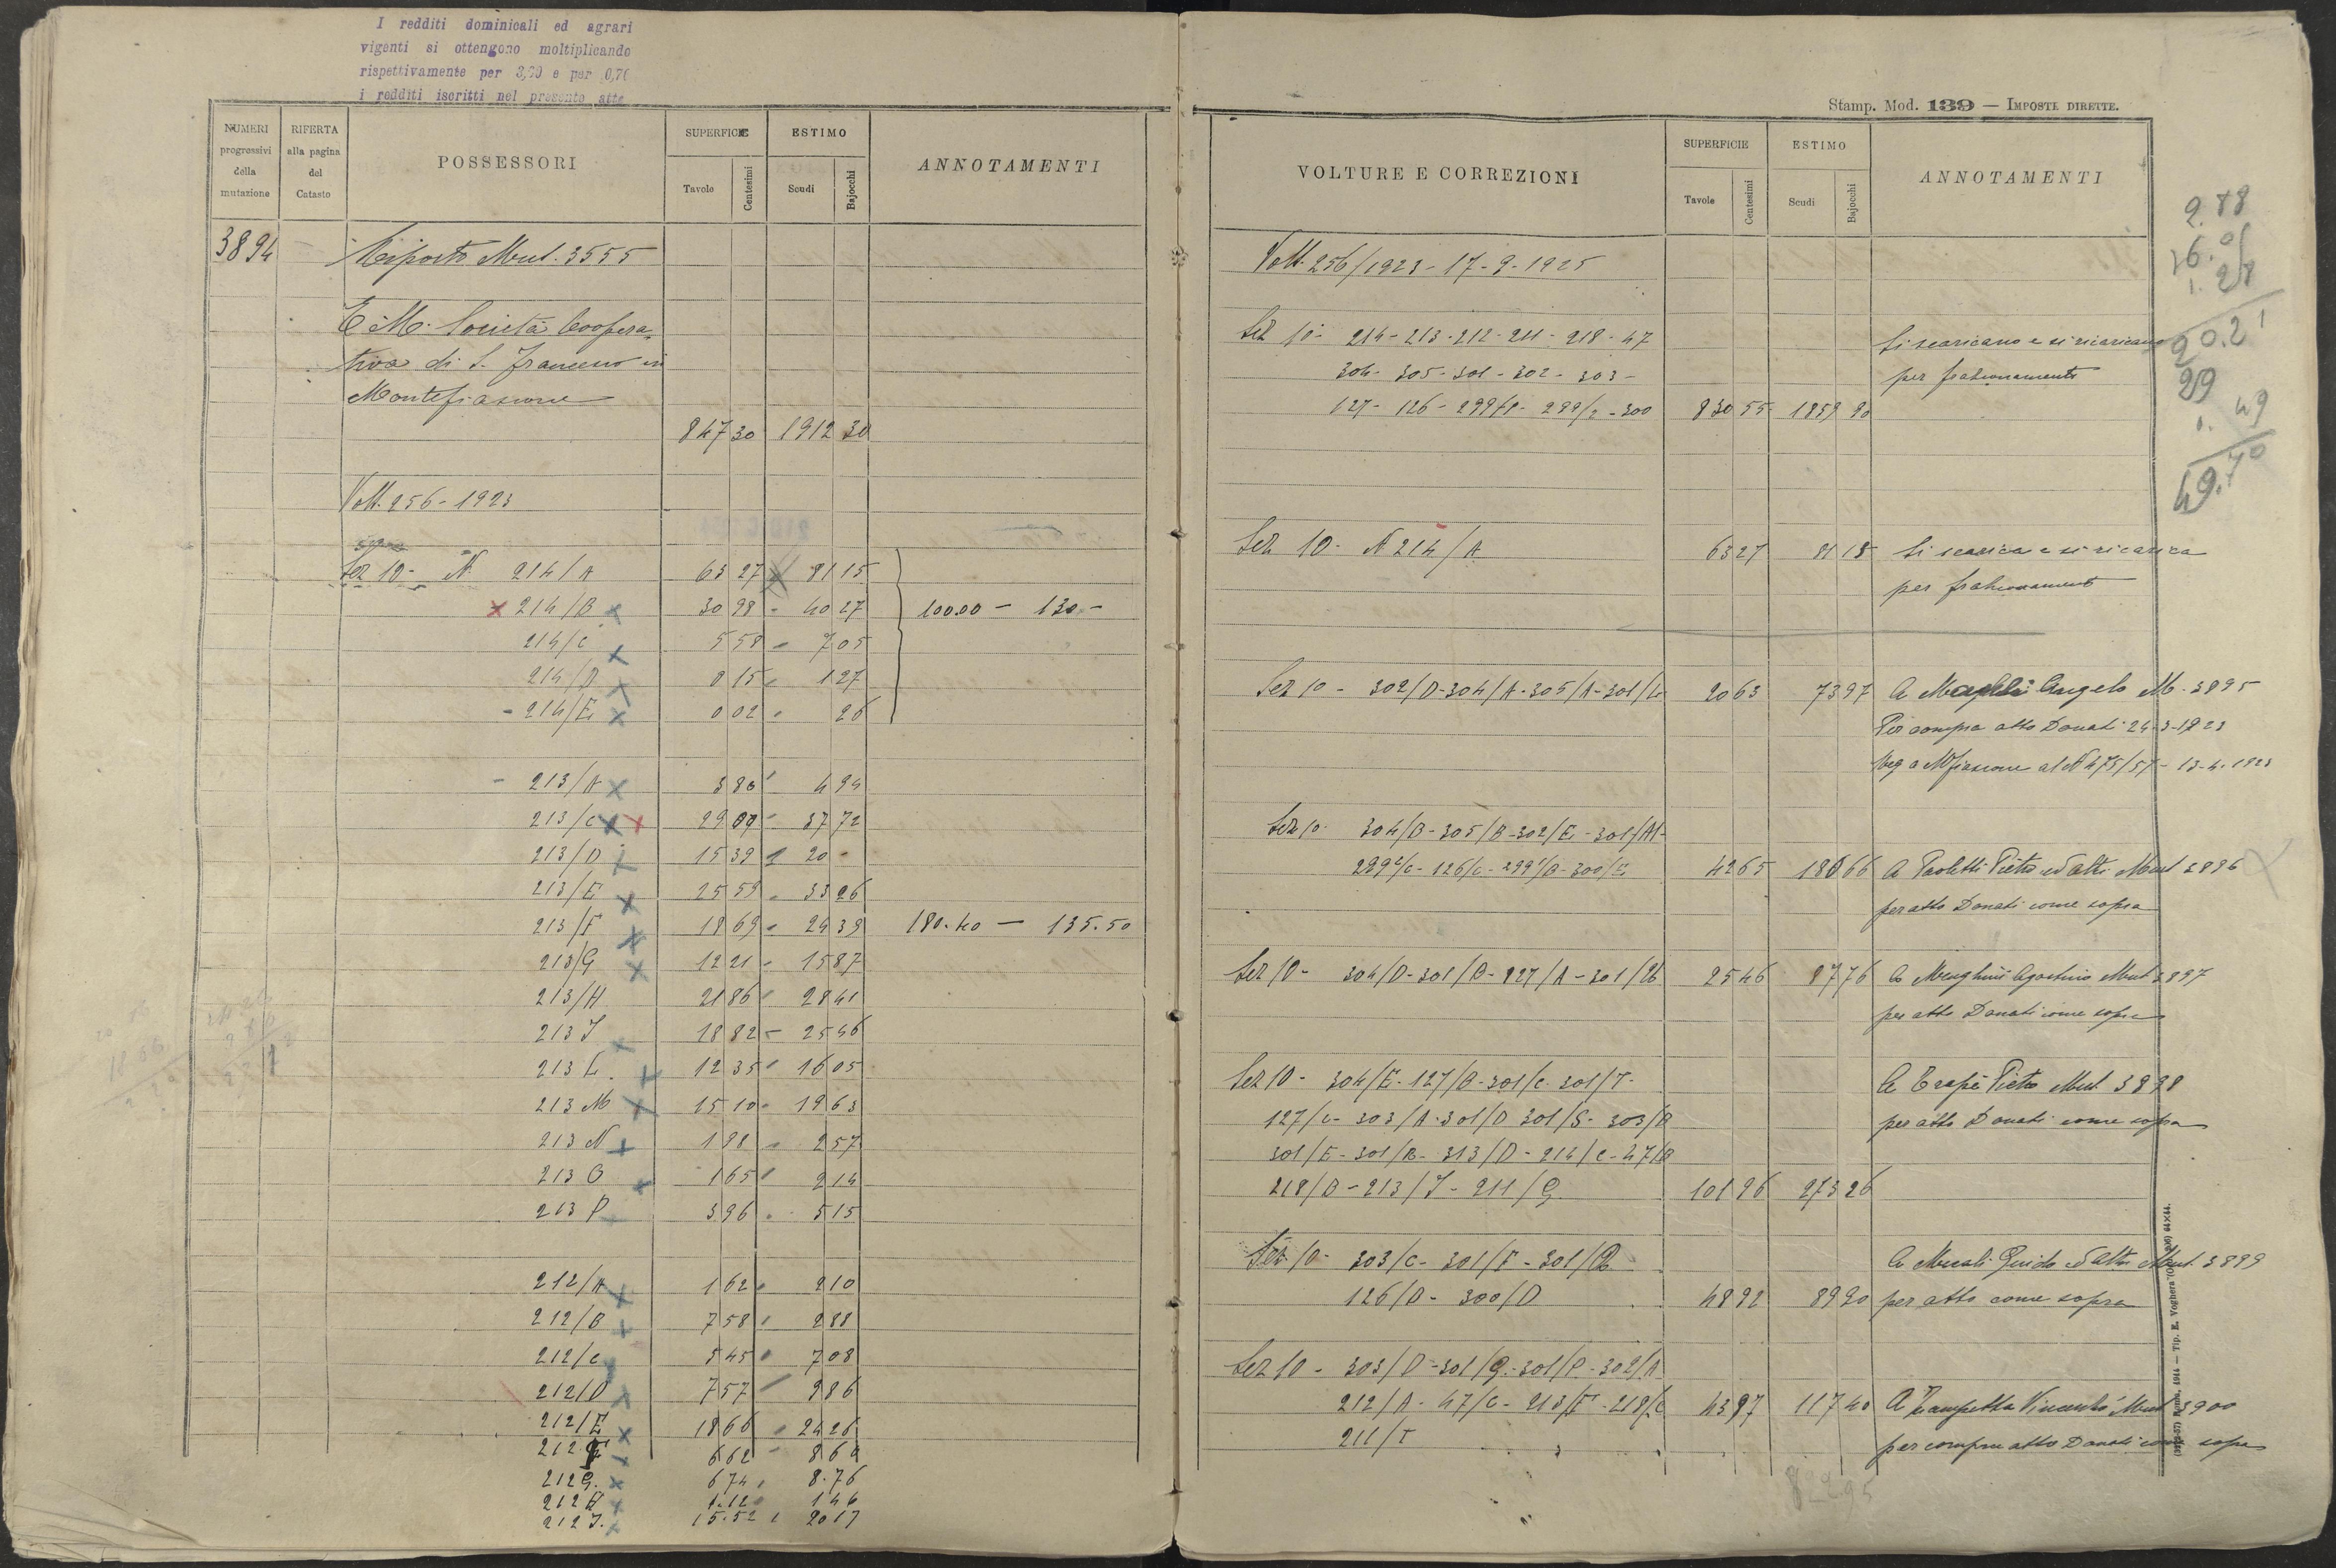 I redditi dominicali ed agrari
vigenti si ottengono moltiplicando
rispettivamente per 3,00 e per 0,70
i redditi iscritti nel presente atto
NUMERI progressivi della mutazione
RIFERTA alla pagina del Catasto
POSSESSORI
SUPERFICIE
Tavole Centesimi
ESTIMO
Scudi Bajocchi
ANNOTAMENTI
3894 Riporto Mut. 3555
E. M. Società Coopera
tiva di S. Francesco in
Montefiascone
847 30 1912 30
Volt. 256 - 1923
Sez 10 - N. 214/A 63 27 81 15
214/B 30 98 40 27 100.00 - 130 -
214/C 5 58 7 05
214/D 0 15 1 27
214/E 0 02 26
213/A 3 80 4 94
213/C 29 00 37 72
213/D 15 39 20 -
213/E 25 59 33 26
213/F 18 69 24 39 180.40 - 135.50
213/G 12 21 15 87
213/H 21 86 28 41
213 I 18 82 25 46
213 L 12 35 16 05
213 M 15 10 19 63
213 N 1 98 2 57
213 O 1 65 2 14
213 P 3 96 5 15
212/A 1 62 2 10
212/B 7 58 2 88
212/C 5 45 7 08
212/D 7 57 9 86
212/E 18 66 24 26
212 F 6 62 8 60
212 G. 6 74 8.76
212 H 1.12 1 46
212 I. 15.52 20 17
Stamp. Mod. 139 — IMPOSTE DIRETTE.
VOLTURE E CORREZIONI
SUPERFICIE
Tavole Centesimi
ESTIMO
Scudi Bajocchi
ANNOTAMENTI
Volt. 256/1923 - 17-9-1925
Sez 10 - 214 - 213 - 212 - 211 - 218 - 47 Si scaricano e si ricaricano
304 - 305 - 301 - 302 - 303 - per frazionamento
127 - 126 - 299/1 - 299/2 - 300 830 55 1859 90
Sez 10 - N 214/A 63 27 81 15 Si scarica e si ricarica
per frazionamento
Sez 10 - 302/D - 304/A - 305/A - 301/L 20 63 73 97 A Angelo M. 3895
Per compra atto Donati 24-3-1923
Reg a Mfiascone al N 475/57 - 13-4-1923
Sez 10 - 304/B - 305/B - 302/E - 301/M -
299²/C - 126/C - 299¹/B - 300/E 42 65 180 66 A Paoletti Pietro ed altri Mut 3896
per atto Donati come sopra
Sez 10 - 304/D - 301/B - 127/A - 301/ 25 46 87 76 A Menghini Agostino Mut 3897
per atto Donati come sopra
Sez 10 - 304/E - 127/B - 301/C - 301/T - A Trapè Pietro Mut 3898
127/C - 303/A - 301/D 301/S - 303/B per atto Donati come sopra
301/E - 301/R - 313/D - 214/C - 47/B
218/B - 213/I - 211/G 101 96 273 26
Sez 10 - 303/C - 301/F - 301/ A Guido ed altri Mut. 3899
126/D - 300/D 48 92 89 90 per atto come sopra
Sez 10 - 303/D - 301/G - 301/P - 302/A
212/A - 47/C - 213/F - 218/C 43 97 117 40 A Zampetta Vincenzo Mut 3900
211/I per compra atto Donati come sopra
2.88
1.28
20.21
29
1.49
49.70